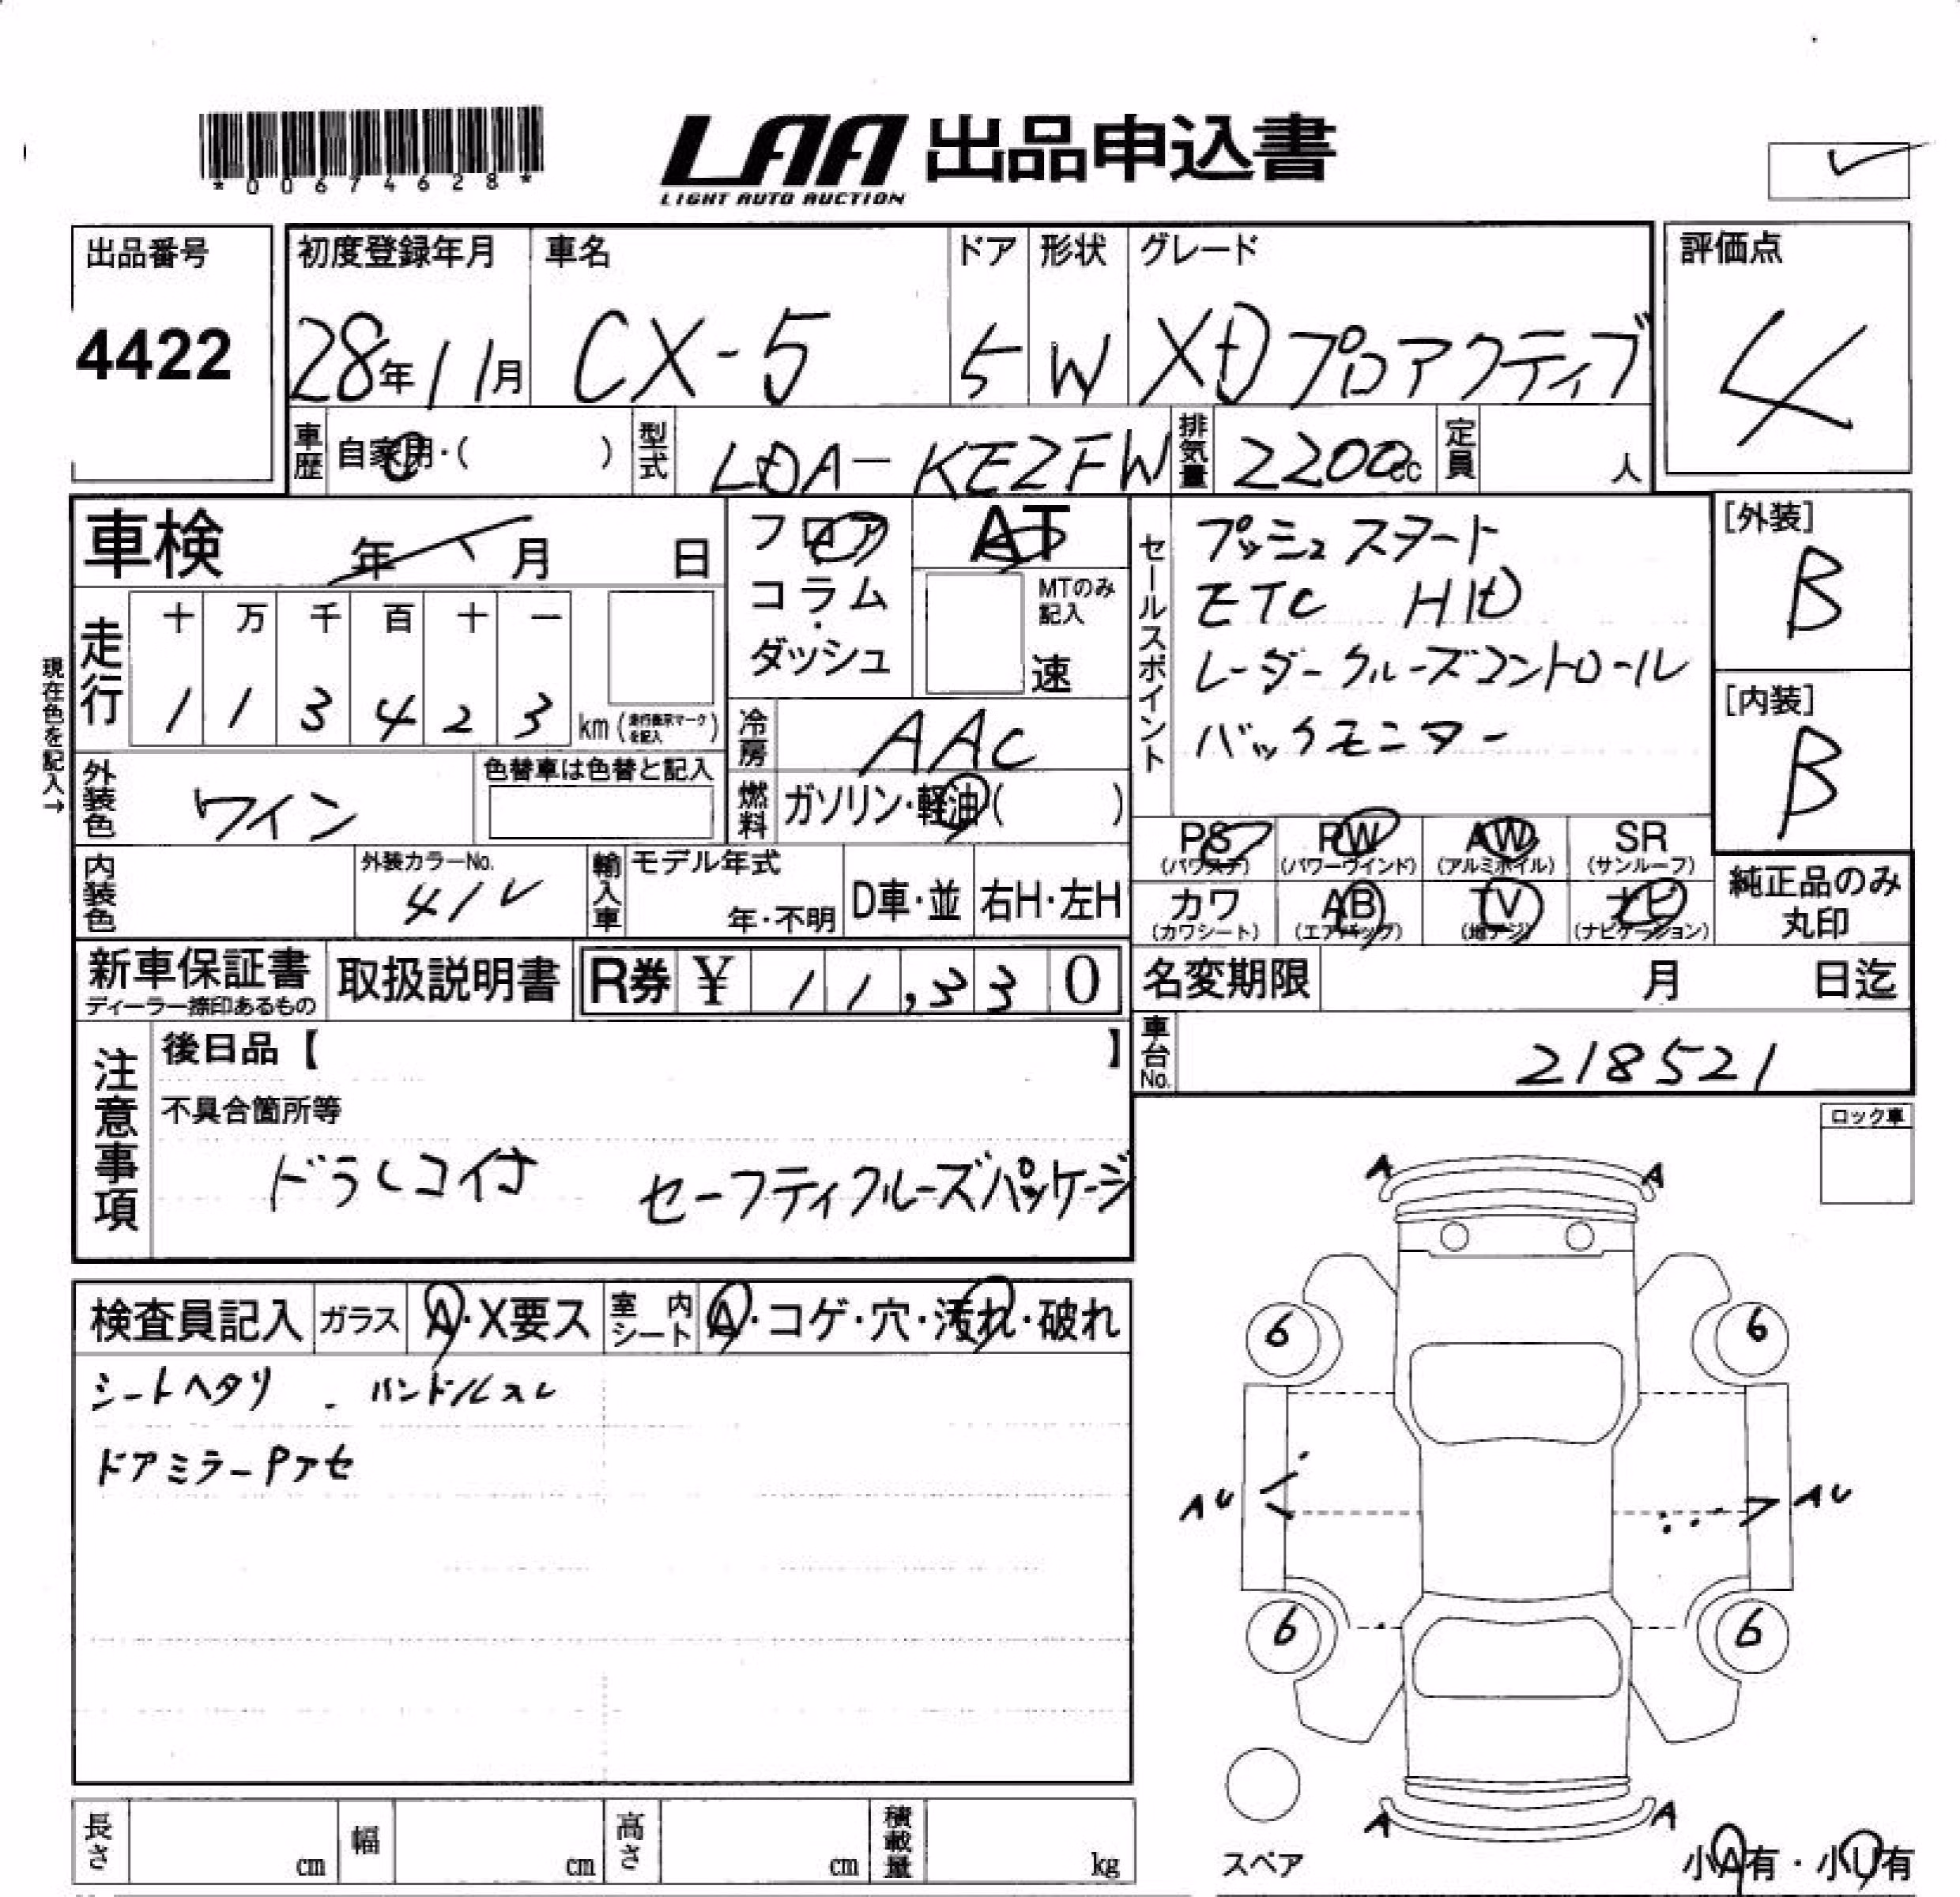 *00674628*
LAA 出品申込書
LIGHT AUTO AUCTION
出品番号
4422
初度登録年月 車名 ドア 形状 グレード
28年11月 CX-5 5 W XD プロアクティブ
評価点
4
車歴 自家用・( ) 型式 LDA-KE2FW 排気量 2200cc 定員 人
車検 年 月 日
フロア
コラム
・
ダッシュ
AT
MTのみ
記入
速
セールスポイント
プッシュスタート
ETC HID
レーダークルーズコントロール
バックモニター
[外装]
B
[内装]
B
現在色を記入→
走行 十 万 千 百 十 一
1 1 3 4 2 3 km (走行表示マークを記入)
冷房 AAC
燃料 ガソリン・軽油( )
外装色 ワイン 色替車は色替と記入
PS PW AW SR
(パワステ) (パワーウインド) (アルミホイル) (サンルーフ)
カワ AB TV ナビ
(カワシート) (エアバック) (地デジ) (ナビゲーション)
純正品のみ
丸印
内装色 外装カラーNo. 41V 輸入車 モデル年式 年・不明 D車・並 右H・左H
新車保証書
ディーラー捺印あるもの
取扱説明書 R券 ¥ 11,330
名変期限 月 日迄
車台No. 218521
注意事項
後日品【 】
不具合箇所等
ドラレコ付 セーフティクルーズパッケージ
ロック車
検査員記入 ガラス A・X要ス 室内シート A・コゲ・穴・汚れ・破れ
シートヘタリ . ハンドルスレ
ドアミラーPアセ
A A
6 6
AU AU
6 6
A A
スペア
小A有・小U有
長さ cm 幅 cm 高さ cm 積載量 kg